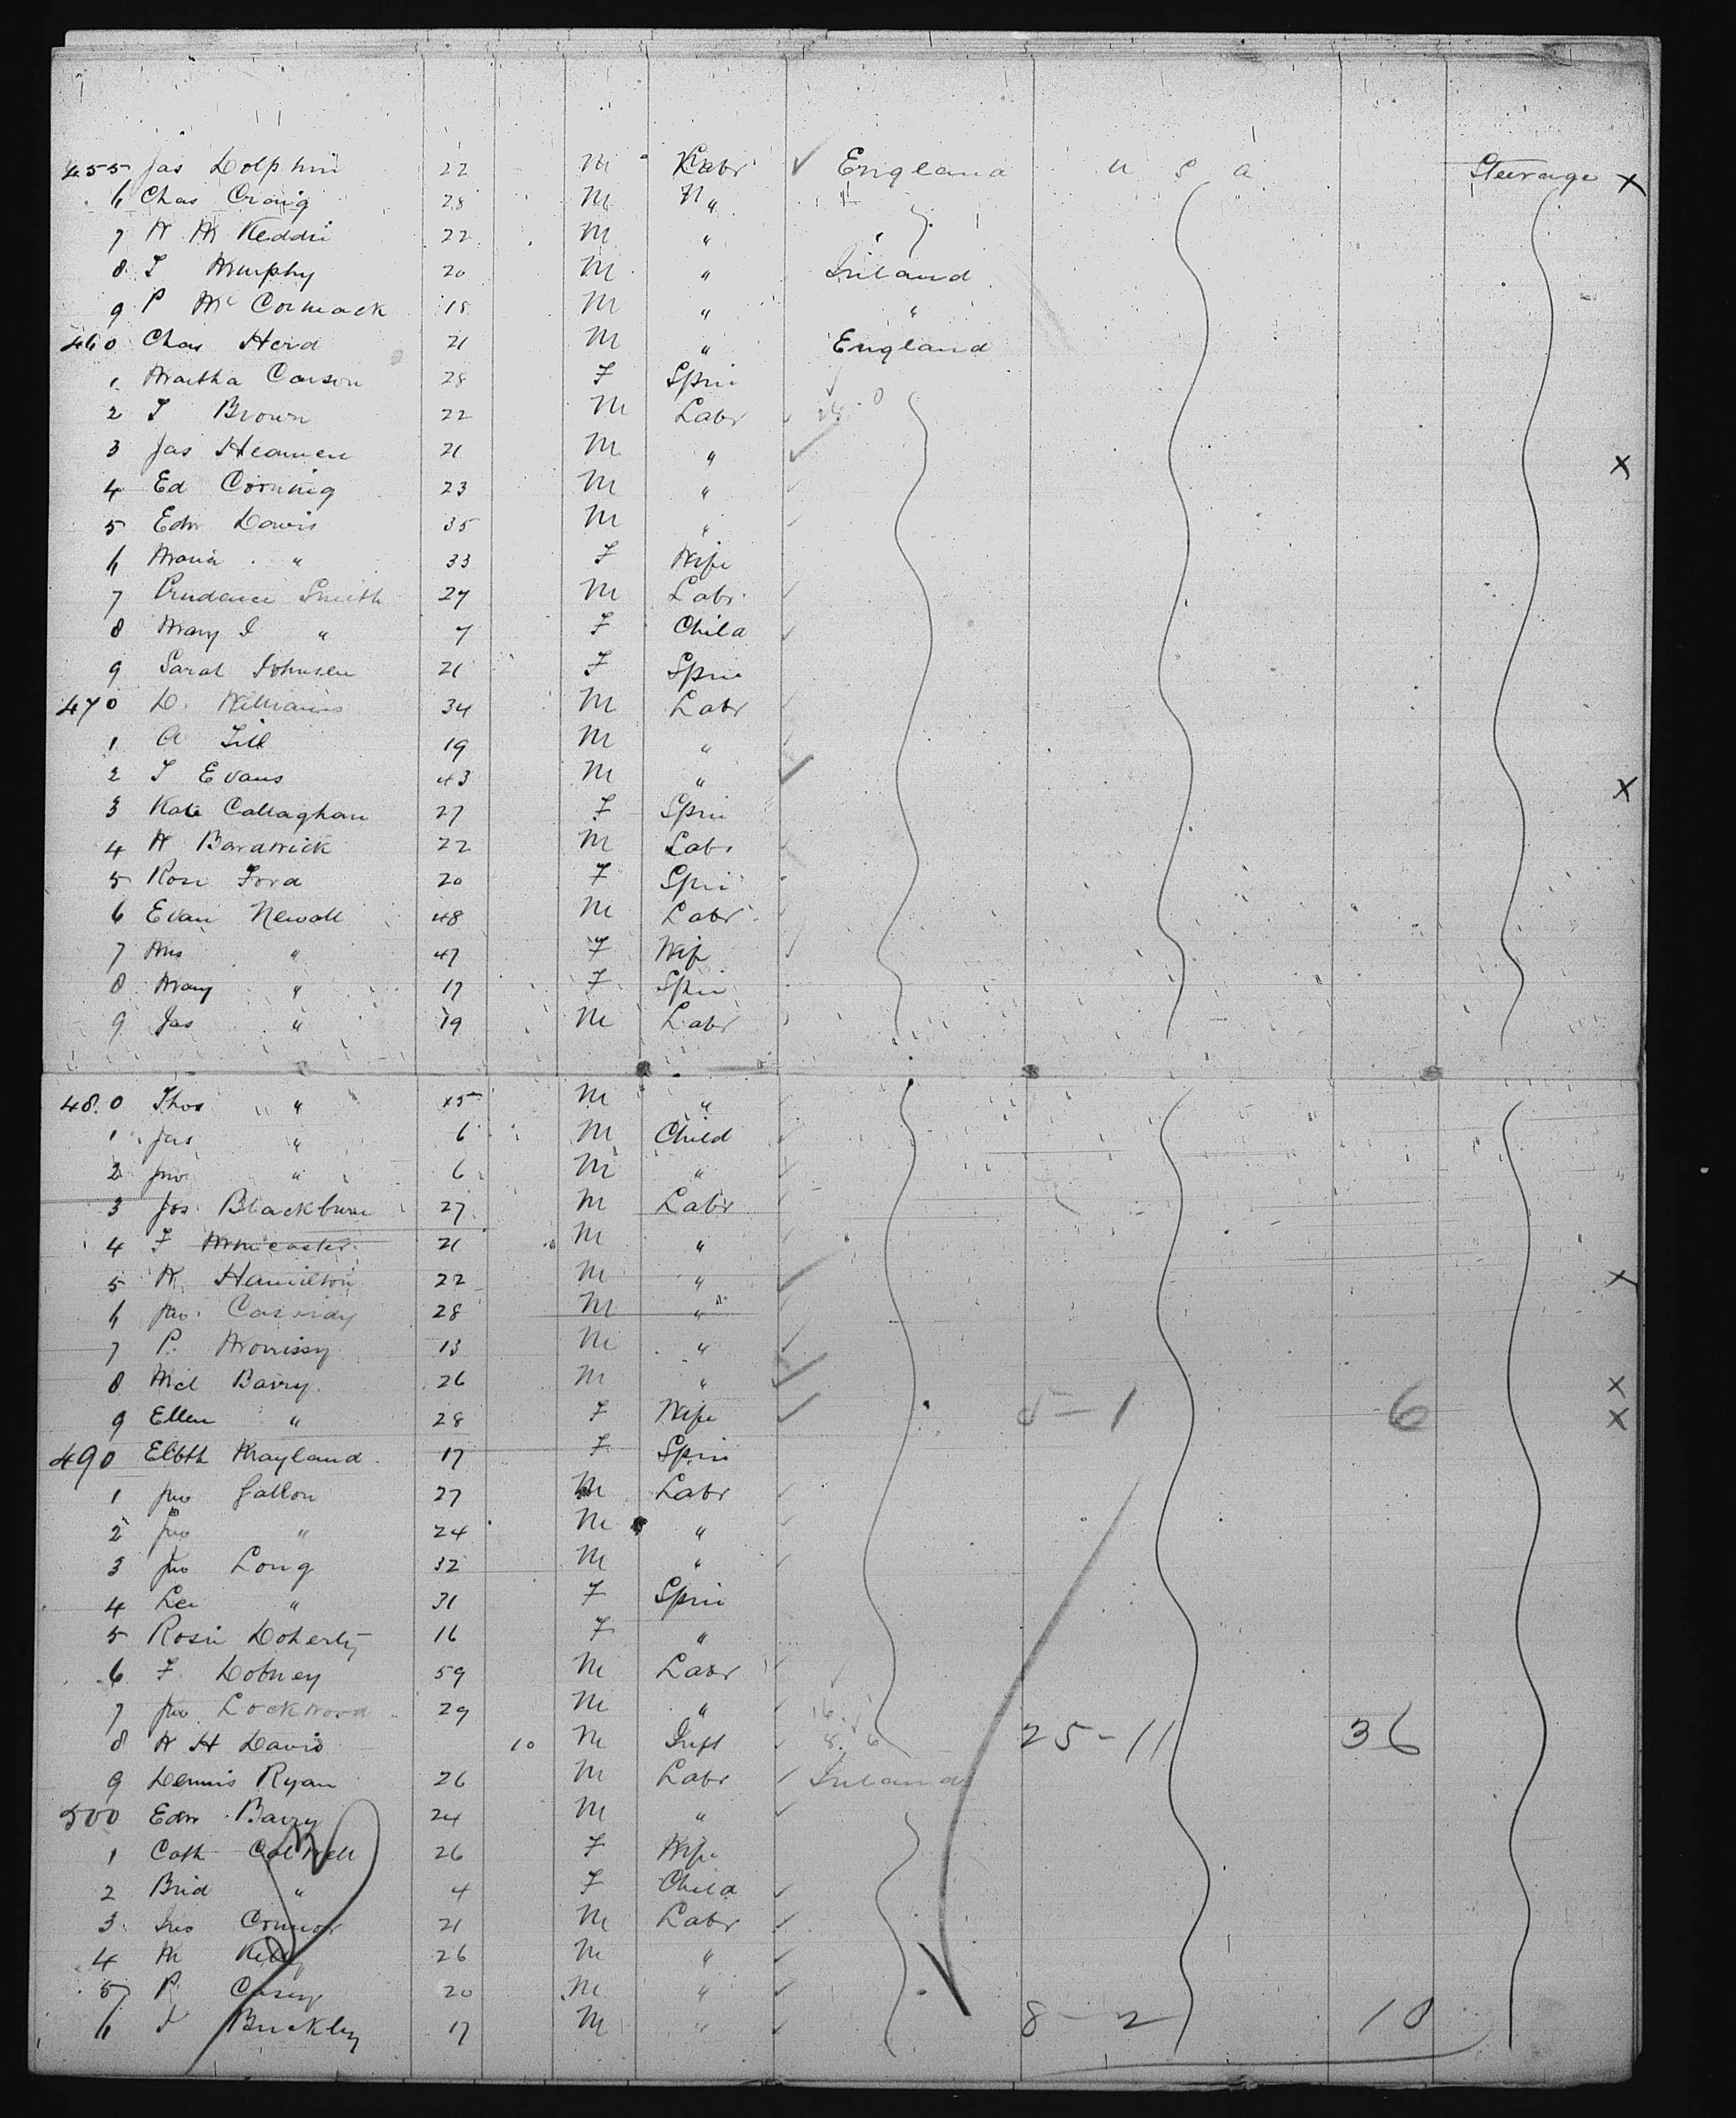 455 Jas Dolphin 22 M Labr ✓ England U S a Steerage X
6 Chas Craig 28 M " "
7 W M Keddie 22 M " "
8 T Murphy 20 M " Ireland
9 P Mc Cormack 18 M " "
460 Chas Herd 21 M " England
1 Martha Carson 28 F Spin
2 T Brown 22 M Labr
3 Jas Heamen 21 M " ✓ X
4 Ed Corning 23 M "
5 Edw Davis 35 M "
6 Maria " 33 F Wife
7 Prudence Smith 27 M Labr
8 Mary E " 7 F Child
9 Sarah Johnson 21 F Spin
470 D. Williams 34 M Labr
1 A Till 19 M "
2 T Evans 43 M " ✓ X
3 Kate Callaghan 27 F Spin
4 W Bardwick 22 M Labr
5 Rose Ford 20 F Spin
6 Evan Newall 48 M Labr
7 Mrs " 47 F Wife
8 Mary " 17 F Spin
9 Jas " 19 M Labr
480 Thos " 15 M "
1 Jas " 6 M Child
2 Jno " 6 M "
3 Jos Blackburn 27 M Labr
4 F Muncaster 21 M "
5 W Hamilton 22 M " ✓ X
6 Jno Cassidy 28 M "
7 P. Morrissy 13 M "
8 Mcl Barry 26 M " ✓ X
9 Ellen " 28 F Wife ✓ 5-1 6 X
490 Elbth Mayland 17 F Spin
1 Jno Gallon 27 M Labr
2 Jno " 24 M "
3 Jno Long 32 M "
4 Lea " 31 F Spin
5 Rosie Doherty 16 F "
6 F Dobney 59 M Labr
7 Jno Lockwood 29 M "
8 W H Davis 10 M Inft 25-11 36
9 Dennis Ryan 26 M Labr Ireland
500 Edw Barry 24 M "
1 Cath Caldwell 26 F Wife
2 Brid " 4 F Child
3 Jno Connor 21 M Labr
4 M Kelly 26 M "
5 P. Casey 20 M "
6 Buckley 17 M " 8-2 10